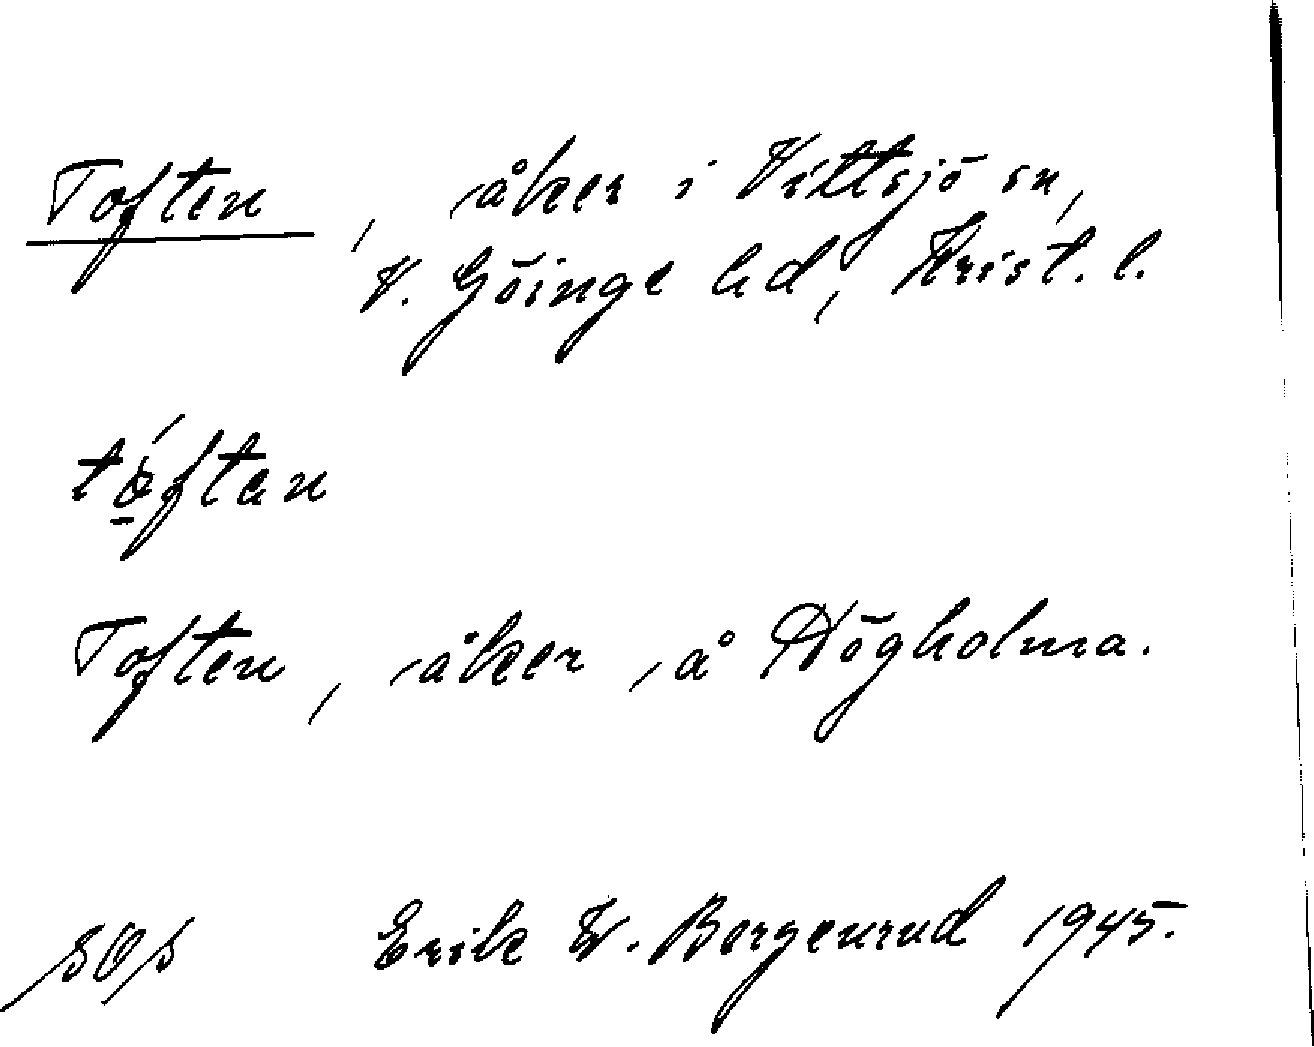 Toften, åker i Vittsjö sn,
V. Göinge hd, Krist. l.
tǫ́ftan
Toften, åker å Högholma.
Erik W. Bergenrud 1945.